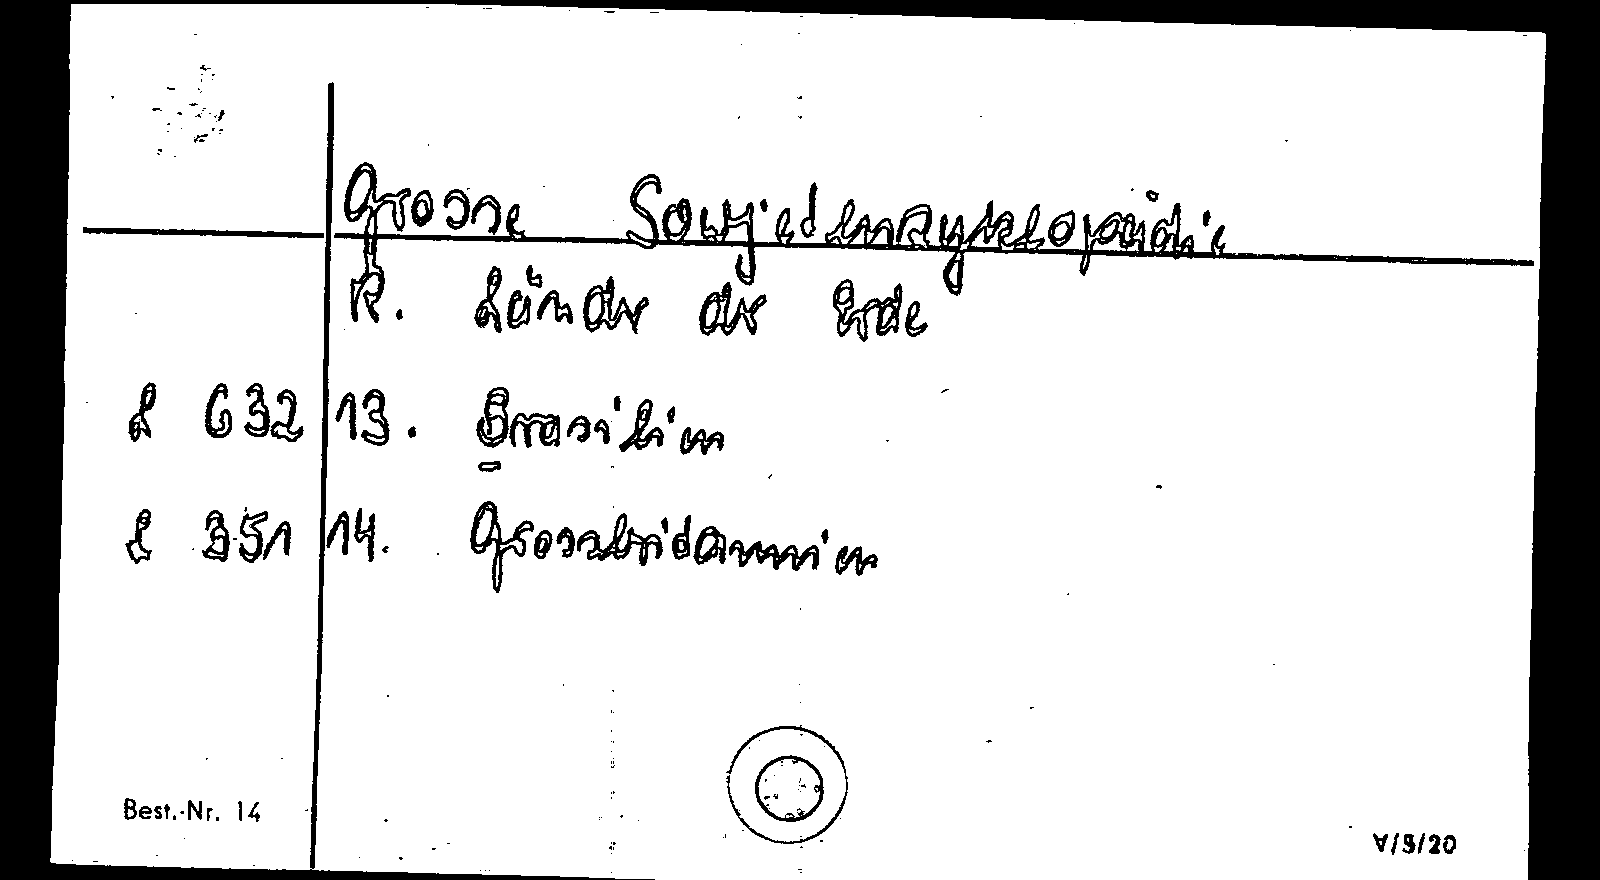 Grosse Sowjetenzyklopädie
R. Länder der Erde
L 632 13. Brasilien
L 351 14. Grossbritannien
Best.-Nr. 14
V/5/20